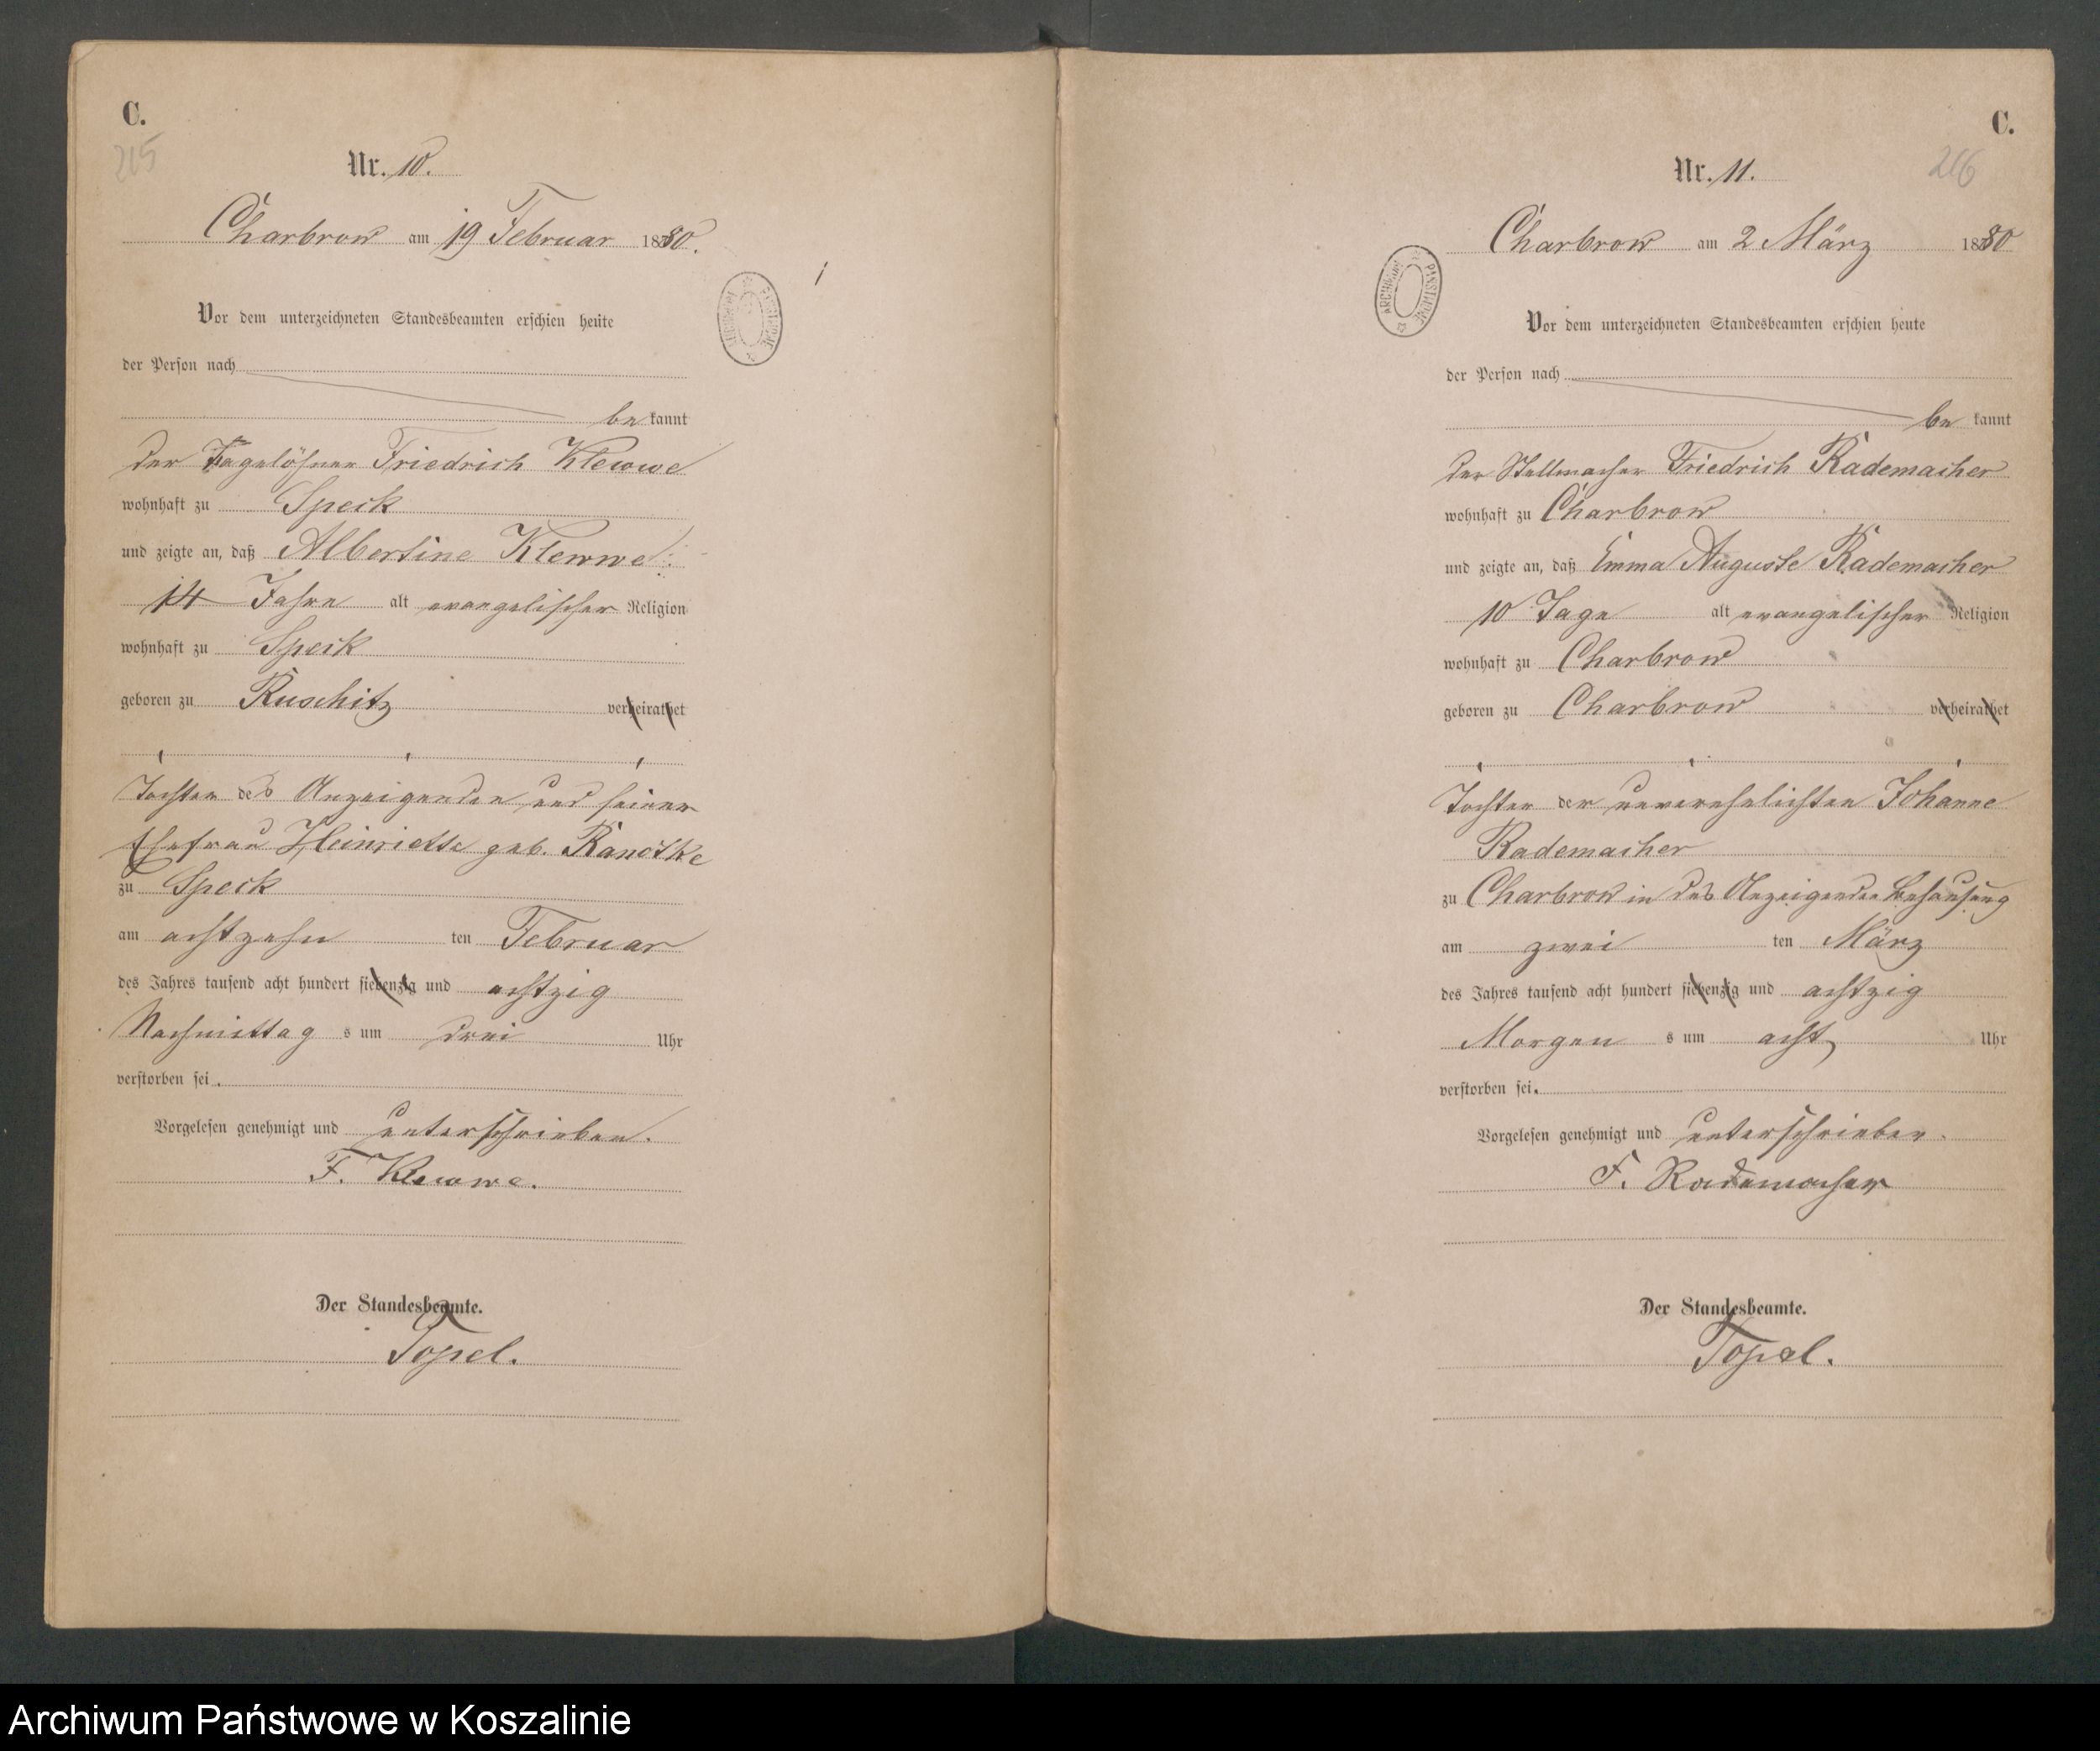 C.
215
Nr. 10.
Charbrow am 19 Februar 1880.
Vor dem unterzeichneten Standesbeamten erschien heute
der Person nach
be kannt
der Tagelöhner Friedrich Klewwe
wohnhaft zu Speck
und zeigte an, daß Albertine Klewwe
14 Jahre alt evangelischer Religion
wohnhaft zu Speck
geboren zu Ruschitz verheirathet
Tochter des Anzeigenden und seiner
Ehefrau Henriette geb.
zu Speck
am achtzehn ten Februar
des Jahres tausend acht hundert siebenzig und achtzig
Nachmittag s um drei Uhr
verstorben sei.
Vorgelesen genehmigt und unterschrieben.
F. Klewwe.
Der Standesbeamte.
Topel.
ARCHIWUM PAŃSTWOWE
C.
216
Nr. 11.
Charbrow am 2 März 1880
Vor dem unterzeichneten Standesbeamten erschien heute
der Person nach
be kannt
der Stellmacher Friedrich Rademacher
wohnhaft zu Charbrow
und zeigte an, daß Emma Auguste Rademacher
10 Tage alt evangelischer Religion
wohnhaft zu Charbrow
geboren zu Charbrow verheirathet
Tochter der unverehelichten Johanne
Rademacher
zu Charbrow in des Anzeigenden Behausung
am zwei ten März
des Jahres tausend acht hundert siebenzig und achtzig
Morgen s um acht Uhr
verstorben sei.
Vorgelesen genehmigt und unterschrieben.
F. Rademacher
Der Standesbeamte.
Topel.
ARCHIWUM PAŃSTWOWE
Archiwum Państwowe w Koszalinie